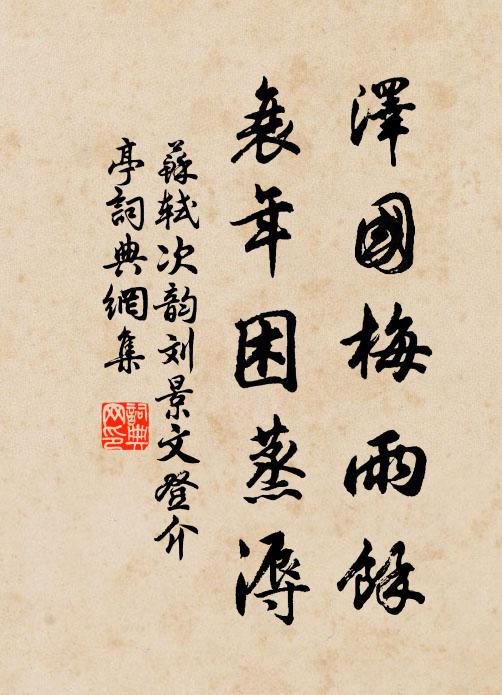 澤國梅雨餘
衰年困蒸溽
蘇軾次韵刘景文登介
亭詞典網集
詞典网印